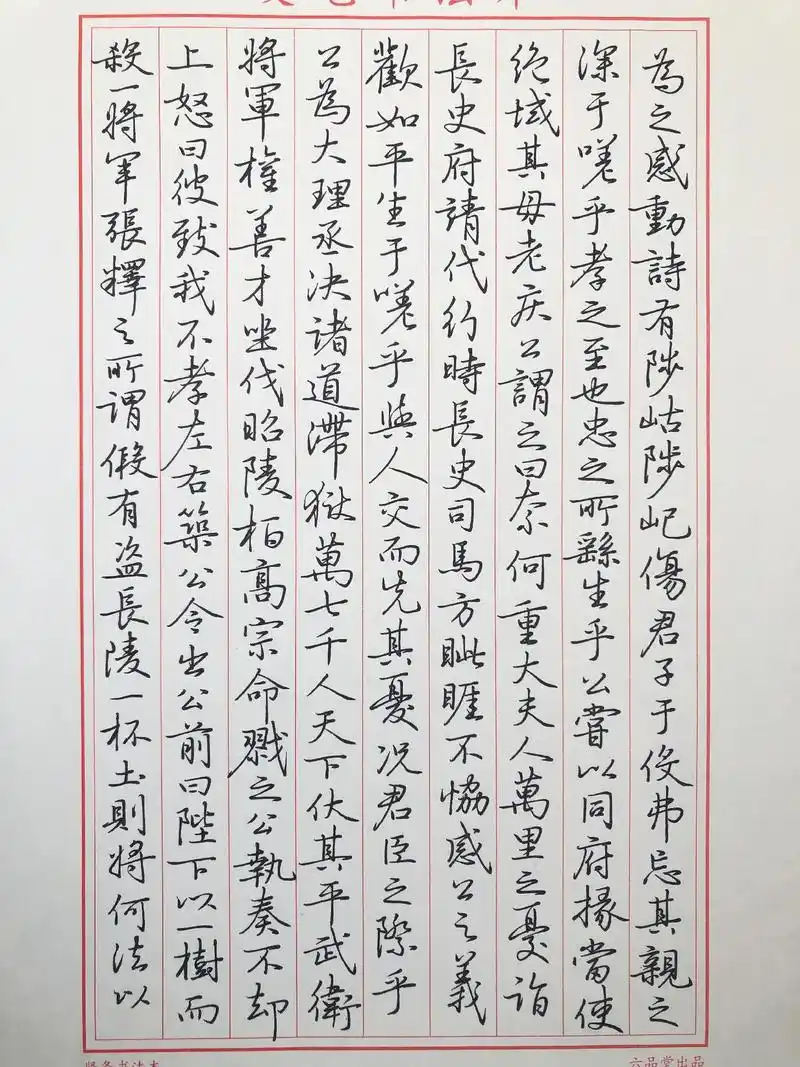 為之感動詩有陟岵陟屺傷君子于役弗忘其親之
深于嗟乎孝之至也忠之所繇生乎公嘗以同府掾當使
絕域其母老疾公謂之曰奈何重大夫人萬里之憂詣
長史府請代行時長史司馬方眦睚不協感公之義
歡如平生于嗟乎與人交而先其憂况君臣之際乎
公為大理丞決諸道滯獄萬七千人天下伏其平武衛
將軍權善才坐伐昭陵柏高宗命戮之公執奏不却
上怒曰彼致我不孝左右築公令出公前曰陛下以一樹而
殺一將軍張釋之所謂假有盜長陵一杯土則將何法以
六品堂出品